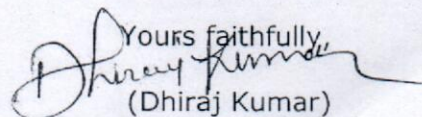 Yours faithfully,
Dhiraj Kumar
(Dhiraj Kumar)